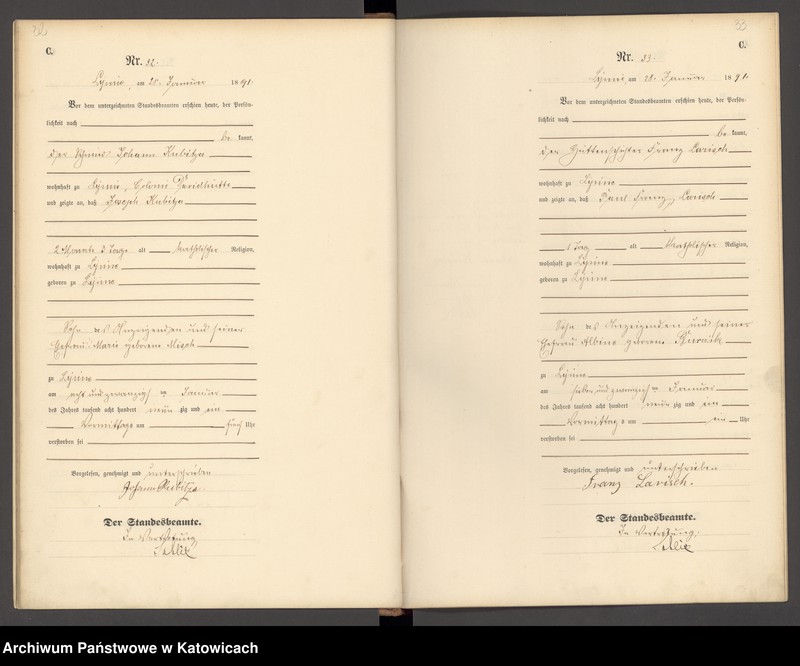 32
C.
Nr. 32.
Lipine, am 28. Januar 1891.
Vor dem unterzeichneten Standesbeamten erschien heute, der Persön-
lichkeit nach
be kannt,
der Johann Kubitza
wohnhaft zu Lipine, Colonie
und zeigte an, daß Joseph Kubitza
2 Monate 3 Tage alt katholischer Religion,
wohnhaft zu Lipine
geboren zu Lipine
Sohn des Anzeigenden und seiner
Ehefrau Marie geborene
zu Lipine
am acht und zwanzigsten Januar
des Jahres tausend acht hundert neun zig und ein
Vormittags um fünf Uhr
verstorben sei
Vorgelesen, genehmigt und unterschrieben
Johann Kubitza.
Der Standesbeamte.
In Vertretung
33
C.
Nr. 33.
Lipine, am 28. Januar 1891.
Vor dem unterzeichneten Standesbeamten erschien heute, der Persön-
lichkeit nach
be kannt,
der Franz Larisch
wohnhaft zu Lipine
und zeigte an, daß Paul Franz Larisch
1 Tag alt katholischer Religion,
wohnhaft zu Lipine
geboren zu Lipine
Sohn des Anzeigenden und seiner
Ehefrau Albine geborene
zu Lipine
am sieben und zwanzigsten Januar
des Jahres tausend acht hundert neun zig und ein
Vormittags um ein Uhr
verstorben sei
Vorgelesen, genehmigt und unterschrieben
Franz Larisch.
Der Standesbeamte.
In Vertretung
Archiwum Państwowe w Katowicach